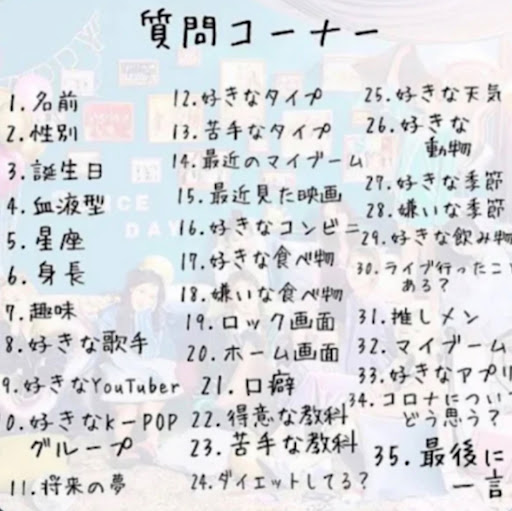 質問コーナー
1.名前
2.性別
3.誕生日
4.血液型
5.星座
6.身長
7.趣味
8.好きな歌手
9.好きなYouTuber
0.好きなK-POP
グループ
11.将来の夢
12.好きなタイプ
13.苦手なタイプ
14.最近のマイブーム
15.最近見た映画
16.好きなコンビニ
17.好きな食べ物
18.嫌いな食べ物
19.ロック画面
20.ホーム画面
21.口癖
22.得意な教科
23.苦手な教科
24.ダイエットしてる?
25.好きな天気
26.好きな
動物
27.好きな季節
28.嫌いな季節
29.好きな飲み物
30.ライブ行ったこと
ある?
31.推しメン
32.マイブーム
33.好きなアプリ
34.コロナについて
どう思う?
35.最後に
一言